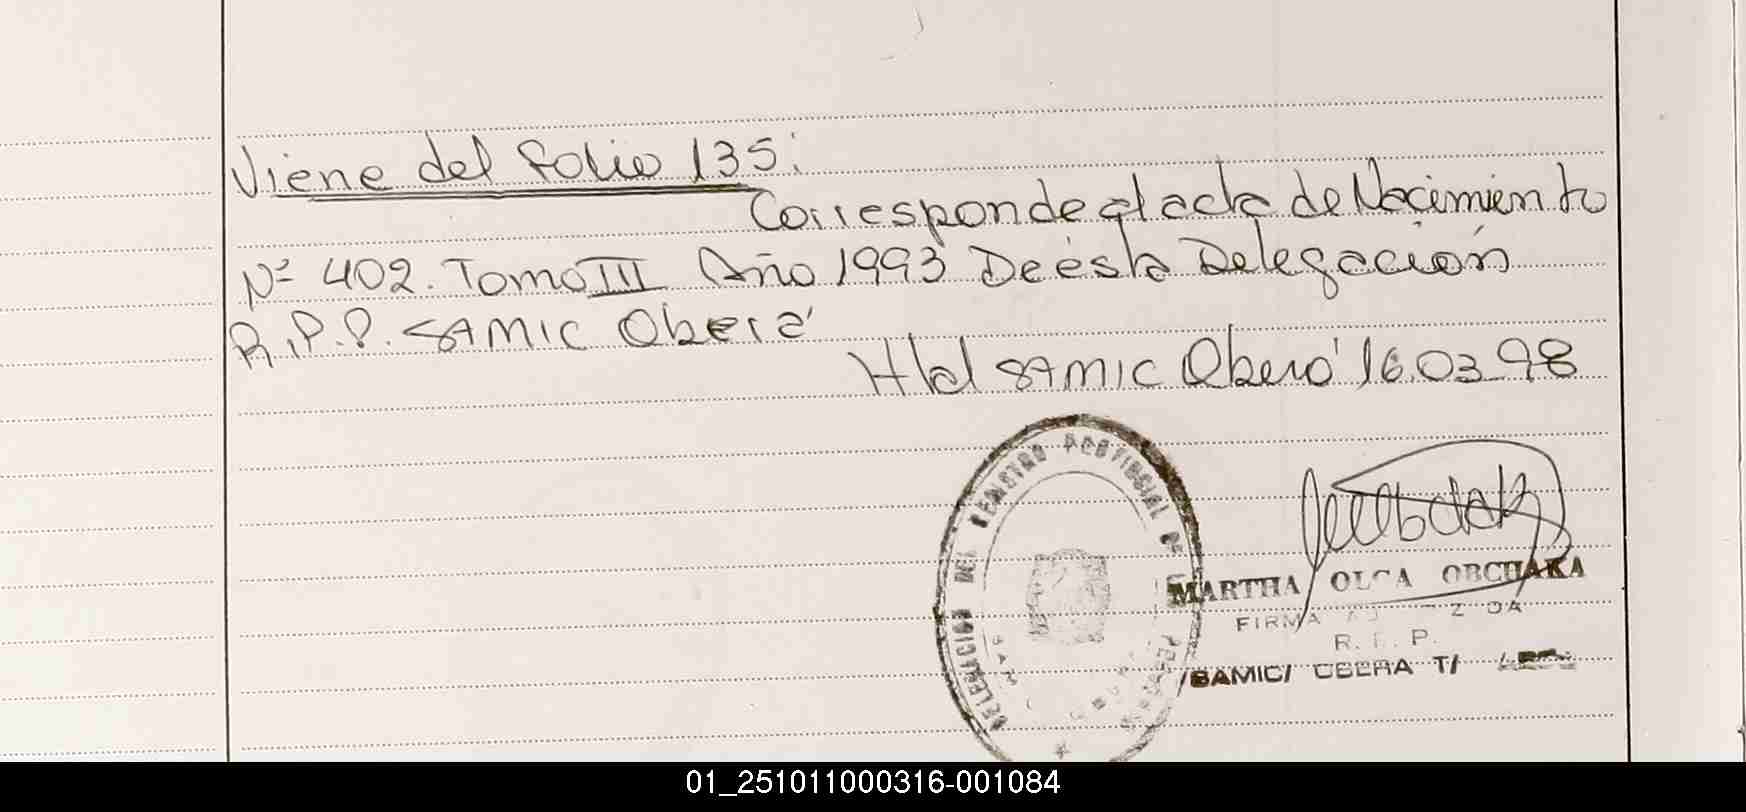 Viene del folio 135:
Corresponde al acta de Nacimiento
Nº 402. Tomo III Año 1993 De ésta Delegación
R.P.P. SAMIC Oberá
Htal SAMIC Oberá 16.03.98
DELEGACION DEL REGISTRO PROVINCIAL DE
MARTHA OLGA OBCHAKA
FIRMA
R. P.
SAMIC/ OBERA T/
01_251011000316-001084